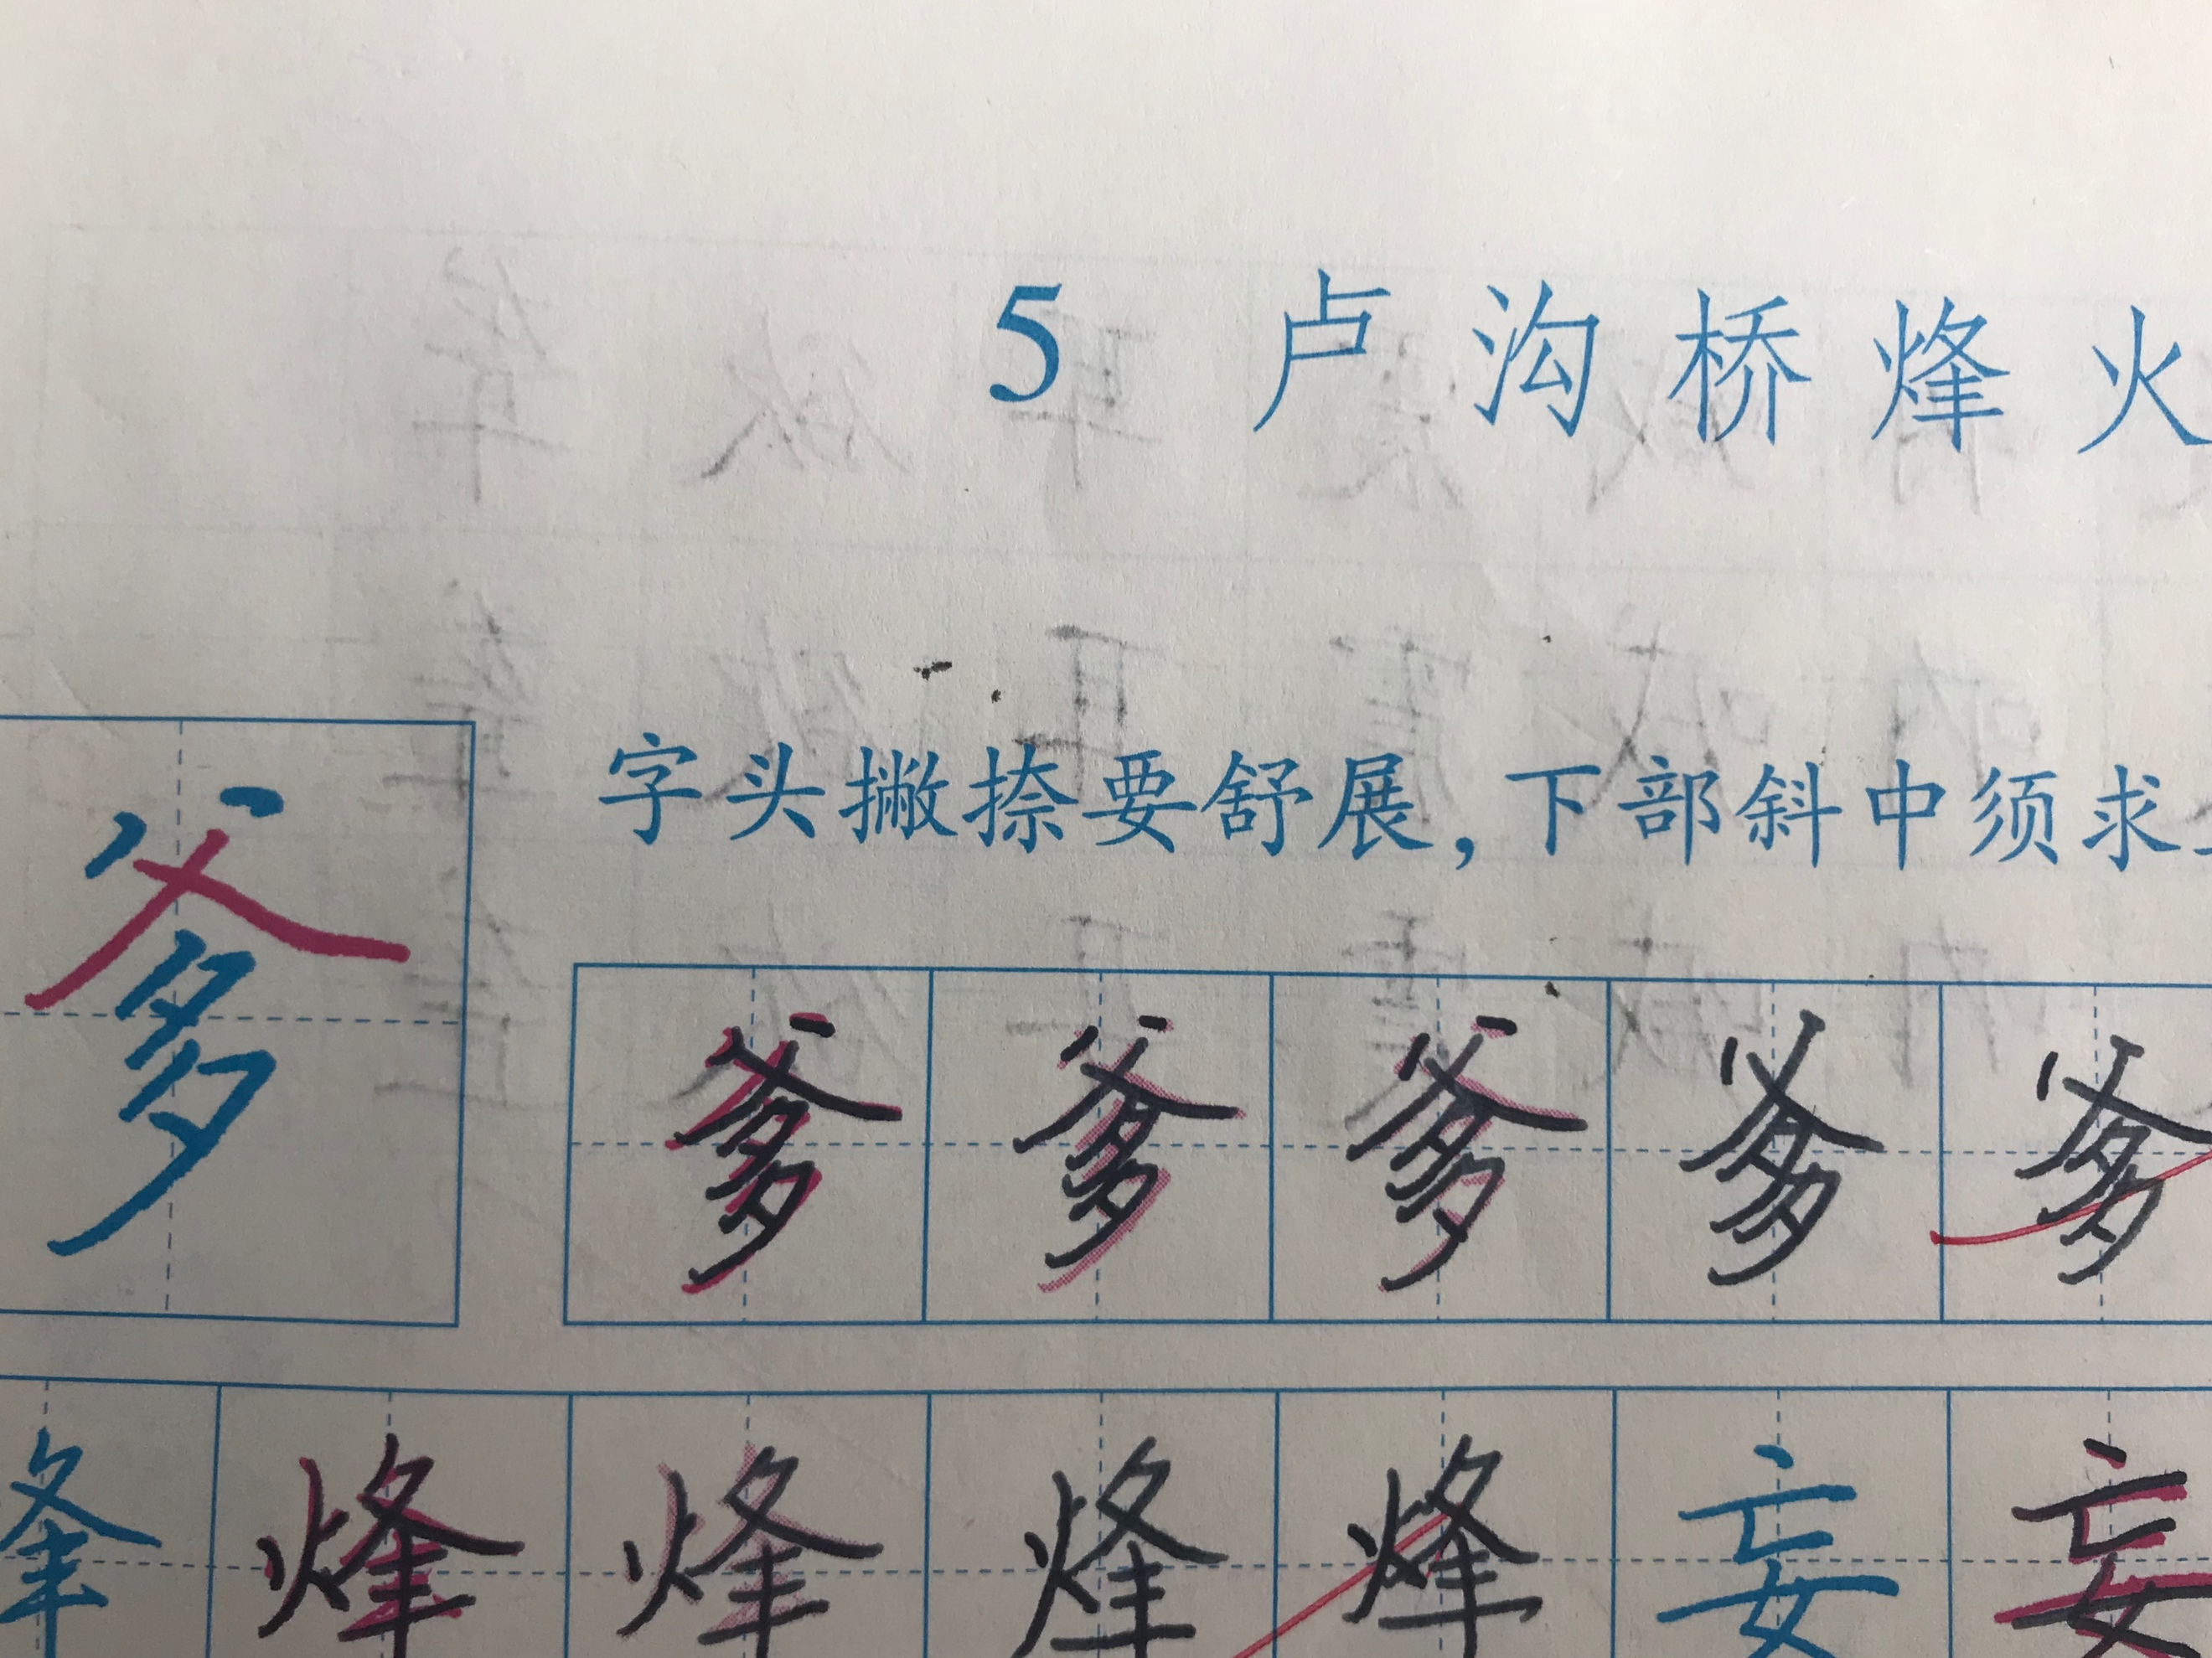 5 卢沟桥烽火
字头撇捺要舒展，下部斜中须求
爹 爹 爹 爹 爹 爹
烽 烽 烽 烽 烽 妄 妄